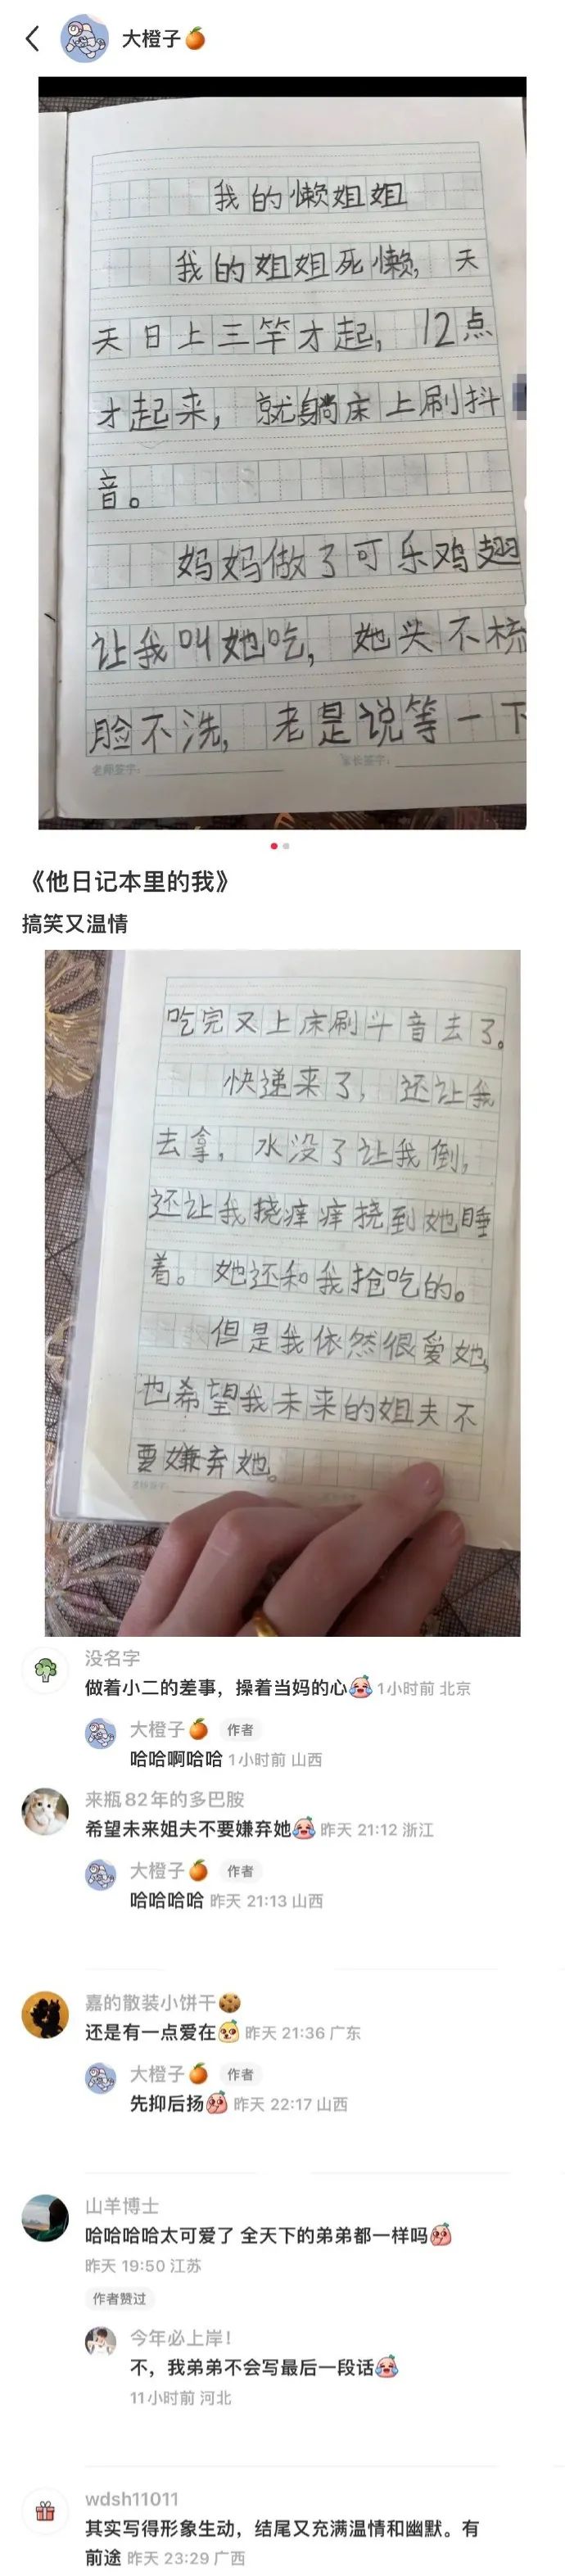 大橙子🍊
我的懒姐姐
我的姐姐死懒,天
天日上三竿才起,12点
才起来,就躺床上刷抖
音。
妈妈做了可乐鸡翅
让我叫她吃,她头不梳
脸不洗,老是说等一下
老师签字:
家长签字:
《他日记本里的我》
搞笑又温情
吃完又上床刷斗音去了。
快递来了,还让我
去拿,水没了让我倒,
还让我挠痒痒挠到她睡
着。她还和我抢吃的。
但是我依然很爱她,
也希望我未来的姐夫不
要嫌弃她。
没名字
做着小二的差事,操着当妈的心😂 1小时前 北京
大橙子🍊 作者
哈哈啊哈哈 1小时前 山西
来瓶82年的多巴胺
希望未来姐夫不要嫌弃她😂 昨天 21:12 浙江
大橙子🍊 作者
哈哈哈哈 昨天 21:13 山西
嘉的散装小饼干🍪
还是有一点爱在 昨天 21:36 广东
大橙子🍊 作者
先抑后扬 昨天 22:17 山西
山羊博士
哈哈哈哈太可爱了 全天下的弟弟都一样吗
昨天 19:50 江苏
作者赞过
今年必上岸!
不,我弟弟不会写最后一段话😂
11小时前 河北
wdsh11011
其实写得形象生动,结尾又充满温情和幽默。有
前途 昨天 23:29 广西